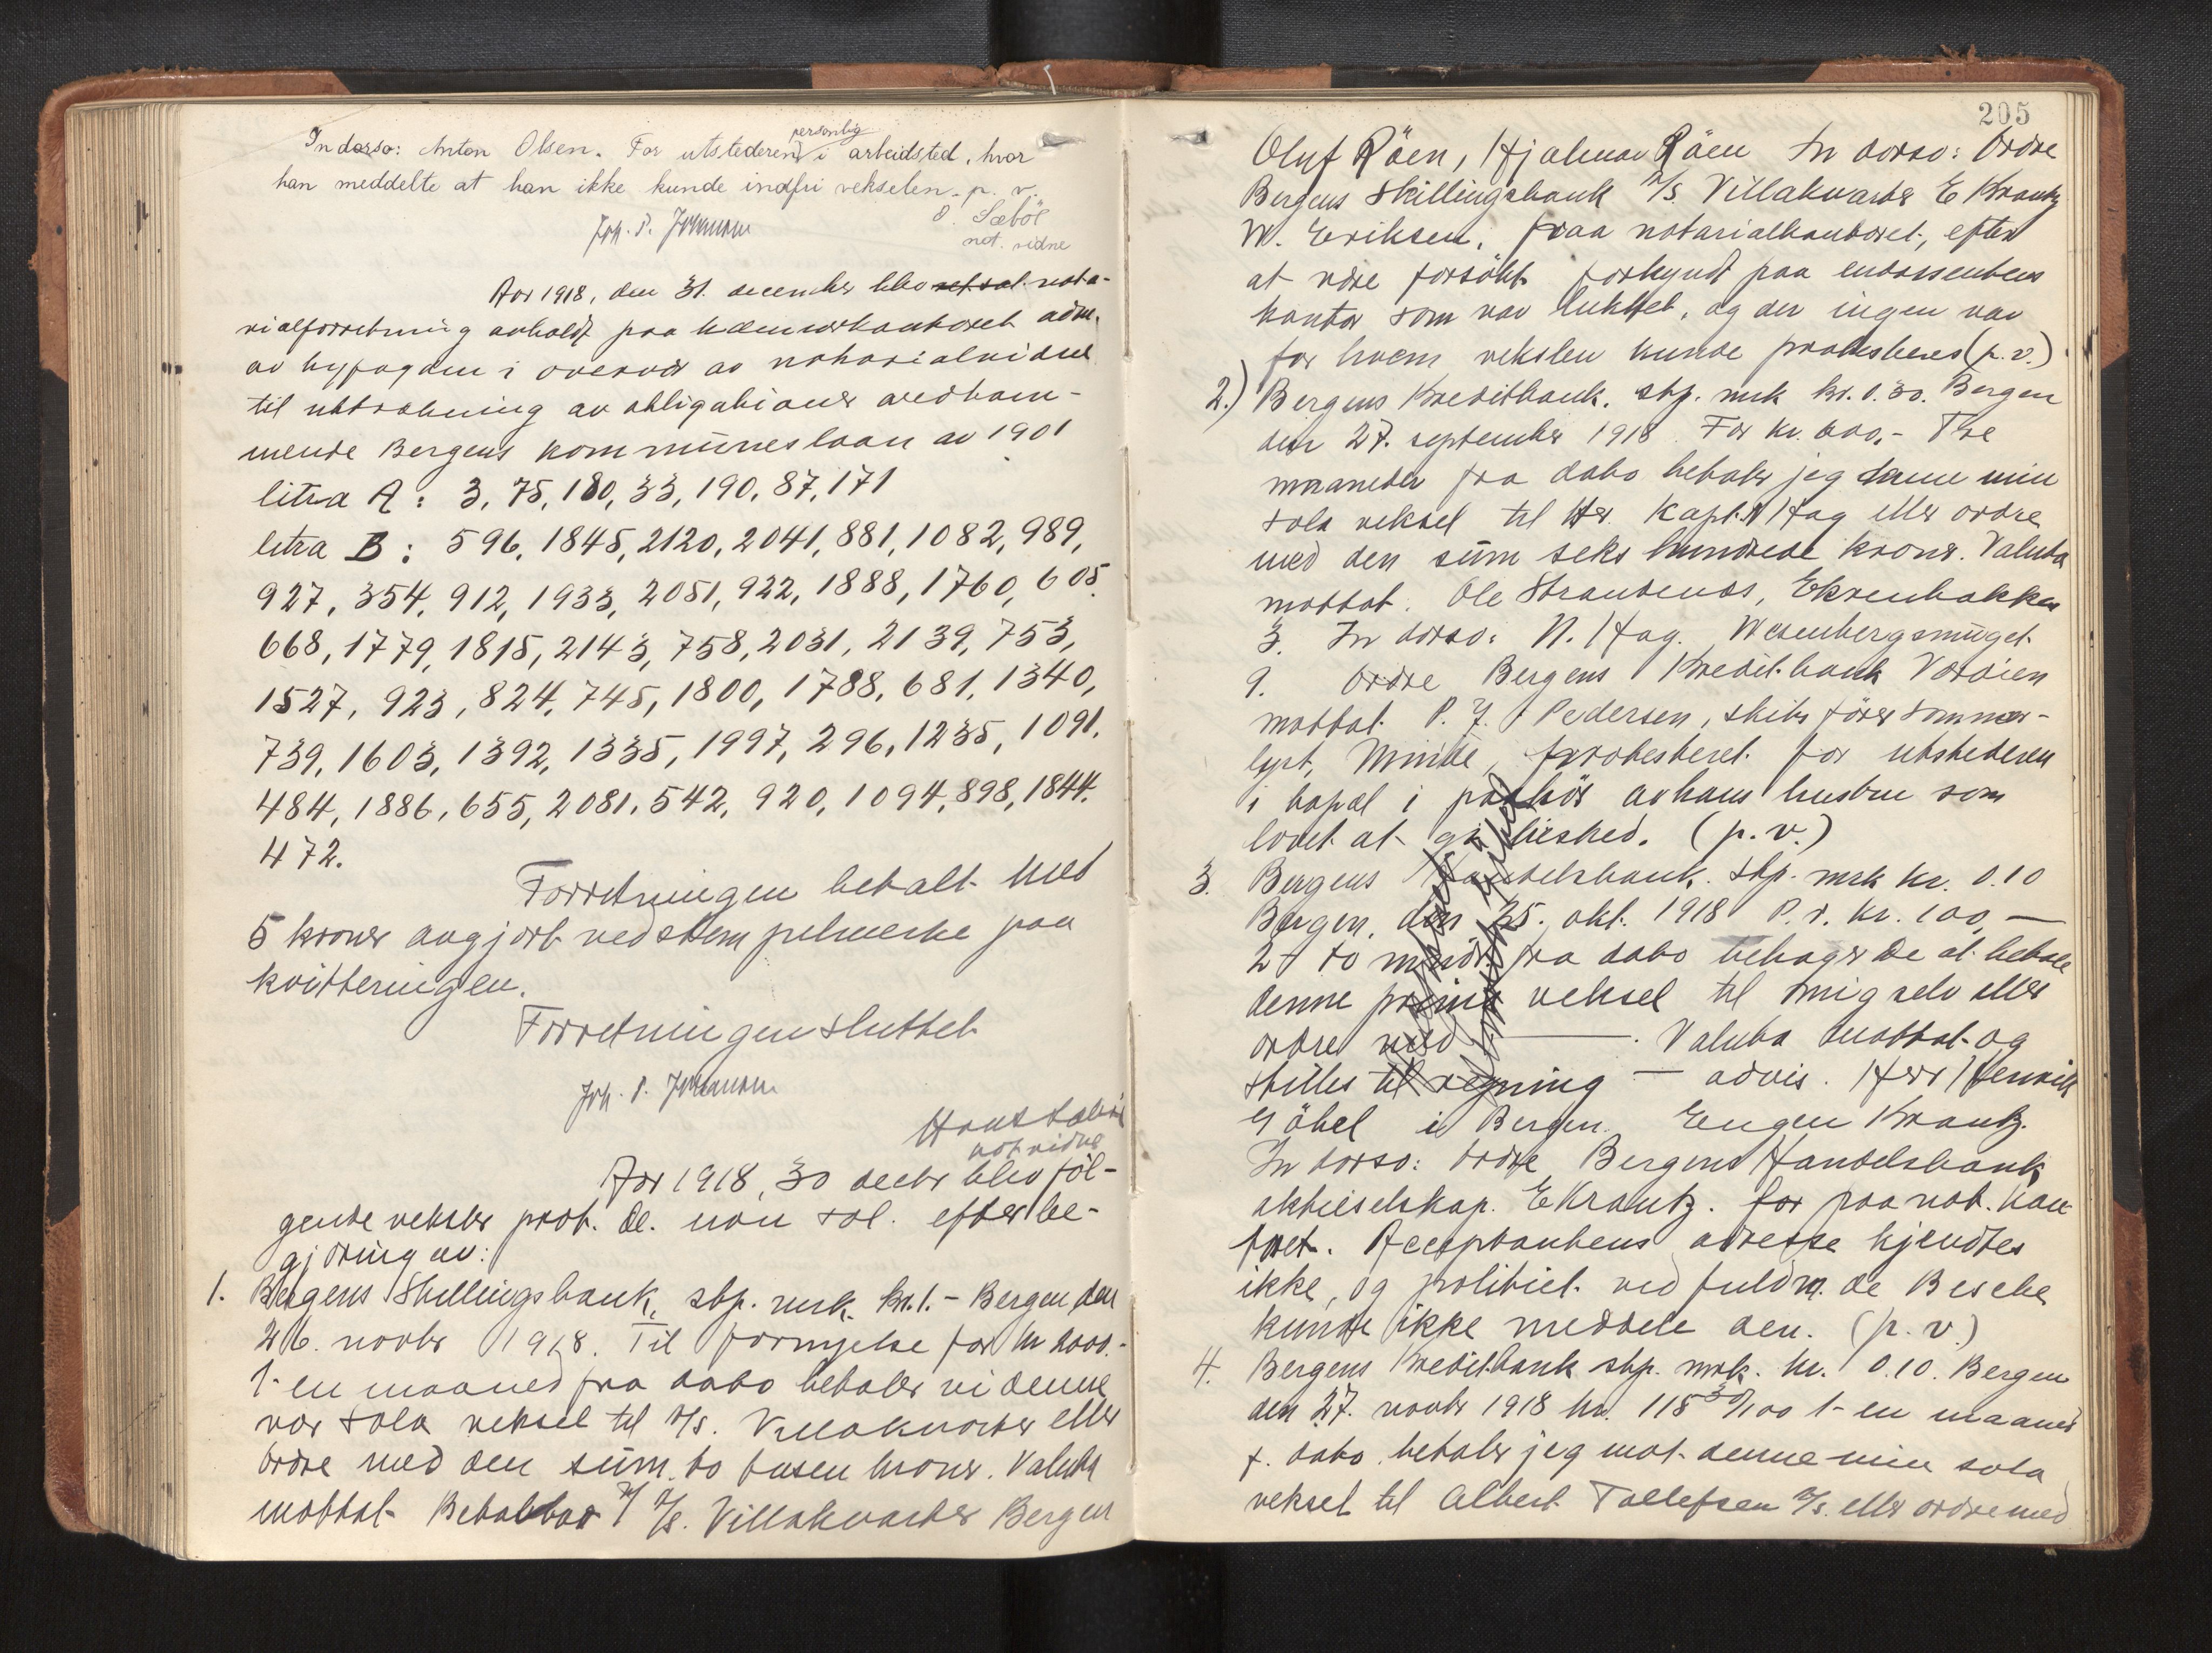 In dorso: Anton Olsen. For utstederen personlig i arbeidsted, hvor
han meddelte at han ikke kunde indfri vekselen. p. v.
Joh. P. Johannesen O. Sæböe
not. vidne
Aar 1918, den 31. december blev nota-
rialforretning avholdt paa kæmnerkontoret adm.
av byfogden i overvær av notarialvidne
til uttrækning av obligationer vedkom-
mende Bergens kommuneslaan av 1901
litra A: 3, 75, 180, 33, 190, 87, 171
litra B: 596, 1845, 2120, 2041, 881, 1082, 989,
927, 354, 912, 1933, 2051, 922, 1888, 1760, 605.
668, 1779, 1815, 2143, 758, 2031, 2139, 753,
1527, 923, 824, 745, 1800, 1788, 681, 1340,
739, 1603, 1392, 1335, 1997, 296, 1235, 1091.
484, 1886, 655, 2081, 542, 920, 1094, 898, 1844.
472.
Forretningen betalt med
5 kroner avgjort ved stempelmerke paa
kvitteringen.
Forretningen sluttet
Joh. P. Johannesen
not vidne
Aar 1918, 30 decbr blev föl-
gende veksler prot. de. non sol. efter be-
gjæring av:
1. Bergens Skillingsbank, stp. mrk. kr. 1.- Bergen den
26. novbr 1918. Til fornyelse for kr 2000.-
1- en maaned fra dato betaler vi denne
vor sola veksel til A/s. Villakvarter eller
ordre med den sum to tusen kroner. Valuta
mottat. Betalbar A/s. Villakvarter Bergen
205
Oluf Röen, Hjalmar Röen In dorso: Ordre
Bergens Skillingsbank A/s. Villakvarter E Krantz
W. Eriksen. paa notarialkontoret, efter
at være forsökt forkyndt paa endossentens
kontor som var lukket, og der ingen var
for hvem vekslen kunde protesteres (p. v.)
2.) Bergens Kreditbank. stp. mrk kr. 0.30. Bergen
den 27. september 1918. For kr. 600,- Tre
maaneder fra dato betaler jeg denne min
sola veksel til Hr. Kapt. N Hag eller ordre
med den sum seks hundrede kroner. Valuta
mottat. Ole Strandenæs, Ekrenbakken
3. In dorso: N. Hag. Wesenbergsmuget
9. Ordre Bergens Kreditbank Værdien
mottat. P. J. Pedersen, skibsförer Sommer-
lyst, Minde, protesteret for utstederen
i bopæl i paahör av hans hustru som
lovet at gi besked. (p. v.)
3. Bergens Handelsbank. stp. mrk kr. 0.10
Bergen, den 25. okt. 1918 P. r. kr. 100,—
2 to mndr. fra dato behager De at betale
denne prima veksel til mig selv eller
ordre med ——— . Valuta mottat og
stilles til regning — advis. Herr Henrik
Göbel i Bergen. Eugen Krantz.
In dorso: Ordre Bergens Handelsbank
aktieselskap. E Krantz. for paa not. kon-
toret. Acceptantens adresse kjendtes
ikke, og politiet ved fuldm. de Besche
kunde ikke meddele den. (p. v.)
4. Bergens Kreditbank stp. mrk. kr. 0.10. Bergen
den 27. novbr 1918 kr. 118 30/100 1- en maaned
f. dato betaler jeg mot denne min sola
veksel til Albert Tollefsen A/s. eller ordre med